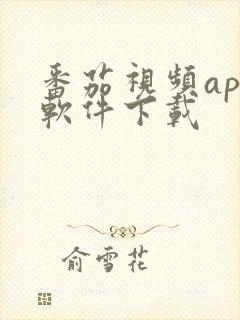 番茄視頻ap
軟件下載
俞雪花